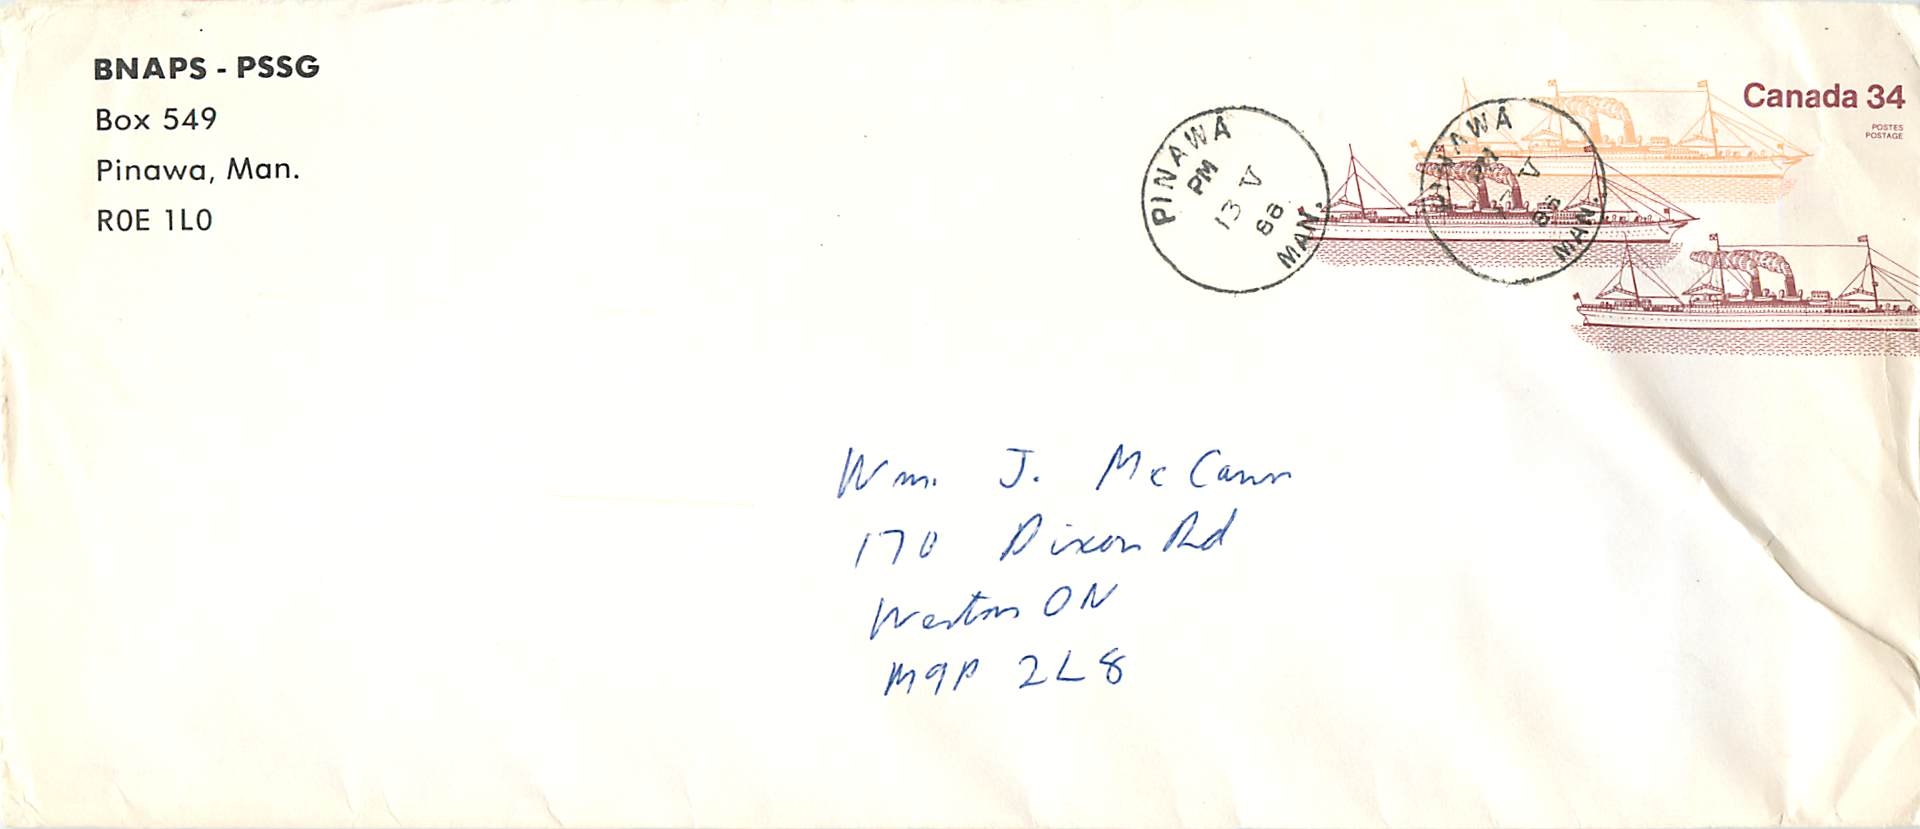 BNAPS - PSSG
Box 549
Pinawa, Man.
R0E 1L0
Canada 34
POSTES
POSTAGE
PINAWA
PM
13 V
86
MAN.
PINAWA
PM
13 V
86
MAN.
Wm. J. McCann
170 Dixon Rd
Weston ON
M9P 2L8